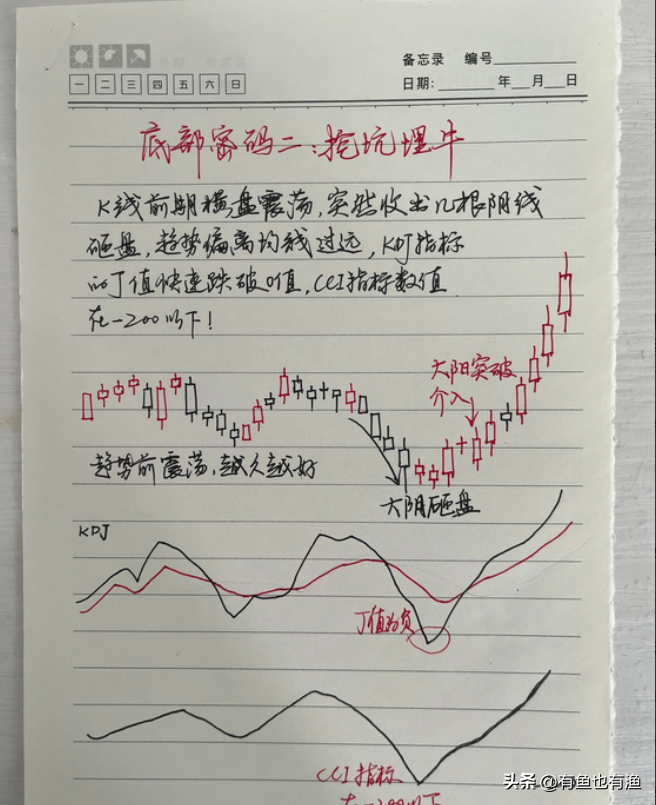 备忘录 编号
一 二 三 四 五 六 日
日期: 年 月 日
底部密码二:挖坑埋牛
K线前期横盘震荡,突然收出几根阴线
砸盘,趋势偏离均线过远,KDJ指标
的J值快速跌破0值,CCI指标数值
在-200以下!
大阳突破
介入
趋势前震荡,越久越好
大阴砸盘
KDJ
J值为负
CCI指标
在-200以下
头条 @有鱼也有渔